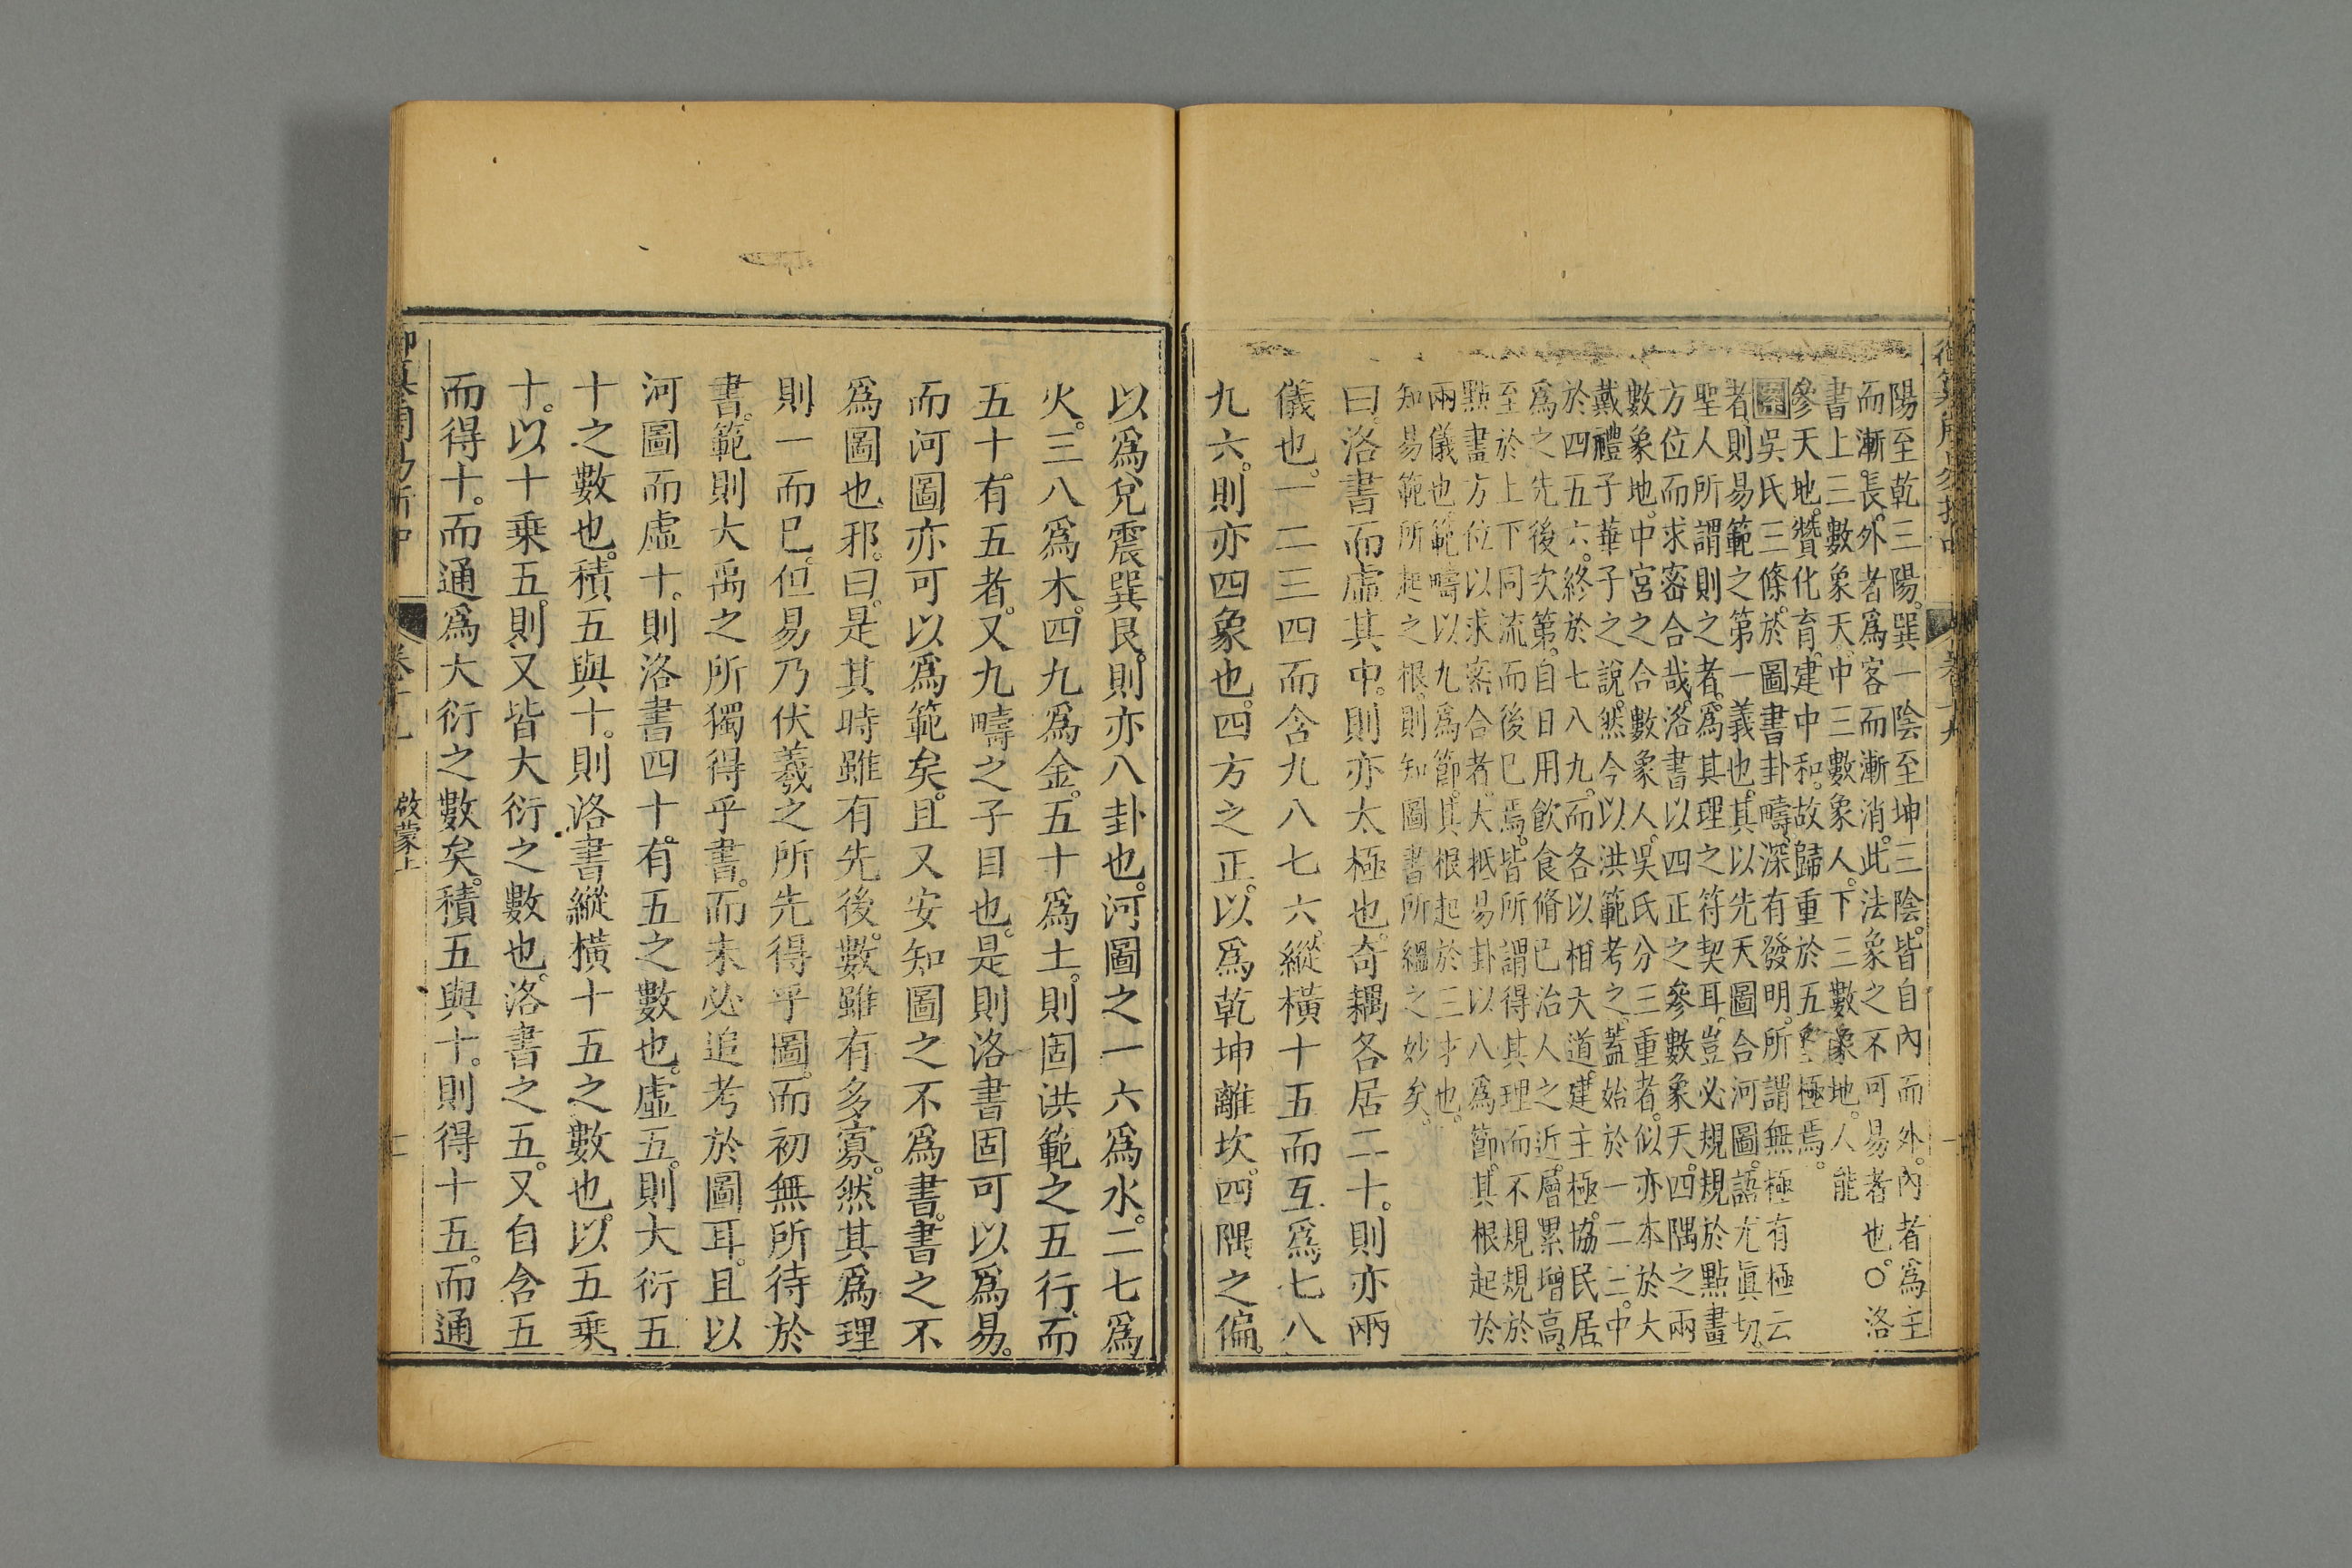 陽至乾三陽。巽一陰至坤三陰。皆自內而外。內者為主
而漸長。外者爲客而漸消。此法象之不可易者也。○洛
書上三數象天。中三數象人。下三數象地。人能
參天地。贊化育。建中和。故歸重於五皇極焉。
案吳氏三條。於圖書卦疇。深有發明。所謂無極有極云
者。則易範之第一義也。其以先天圖合河圖。語尤眞切。
聖人所謂則之者。爲其理之符契耳。豈必規規於點畫
方位而求密合哉。洛書以四正之參數象天。四隅之兩
數象地。中宮之合數象人。吳氏分三重者。似亦本於大
戴禮子華子之說。然今以洪範考之。蓋始於一二三。中
於四五六。終於七八九。而各以相大道。建主極。協民居。
爲之先後次第。自日用飮食脩已治人之近。層累增高。
至於上下同流而後已焉。皆所謂得其理而不規規於
點畫方位以求密合者。大抵易卦以八爲節。其根起於
兩儀也。範疇以九爲節。其根起於三才也。
知易範所起之根。則知圖書所緼之妙矣。
曰。洛書而虛其中。則亦太極也。奇耦各居二十。則亦兩
儀也。一二三四而含九八七六。縱橫十五而互爲七八
九六。則亦四象也。四方之正。以爲乾坤離坎。四隅之偏。
以爲兌震巽艮。則亦八卦也。河圖之一六爲水。二七爲
火。三八爲木。四九爲金。五十爲土。則固洪範之五行。而
五十有五者。又九疇之子目也。是則洛書固可以爲易。
而河圖亦可以爲範矣。且又安知圖之不爲書。書之不
爲圖也邪。曰。是其時雖有先後。數雖有多寡。然其爲理
則一而已。但易乃伏羲之所先得乎圖。而初無所待於
書。範則大禹之所獨得乎書。而未必追考於圖耳。且以
河圖而虛十。則洛書四十有五之數也。虛五。則大衍五
十之數也。積五與十。則洛書縱橫十五之數也。以五乘
十。以十乘五。則又皆大衍之數也。洛書之五。又自含五
而得十。而通爲大衍之數矣。積五與十。則得十五。而通
卷十九
啟蒙上